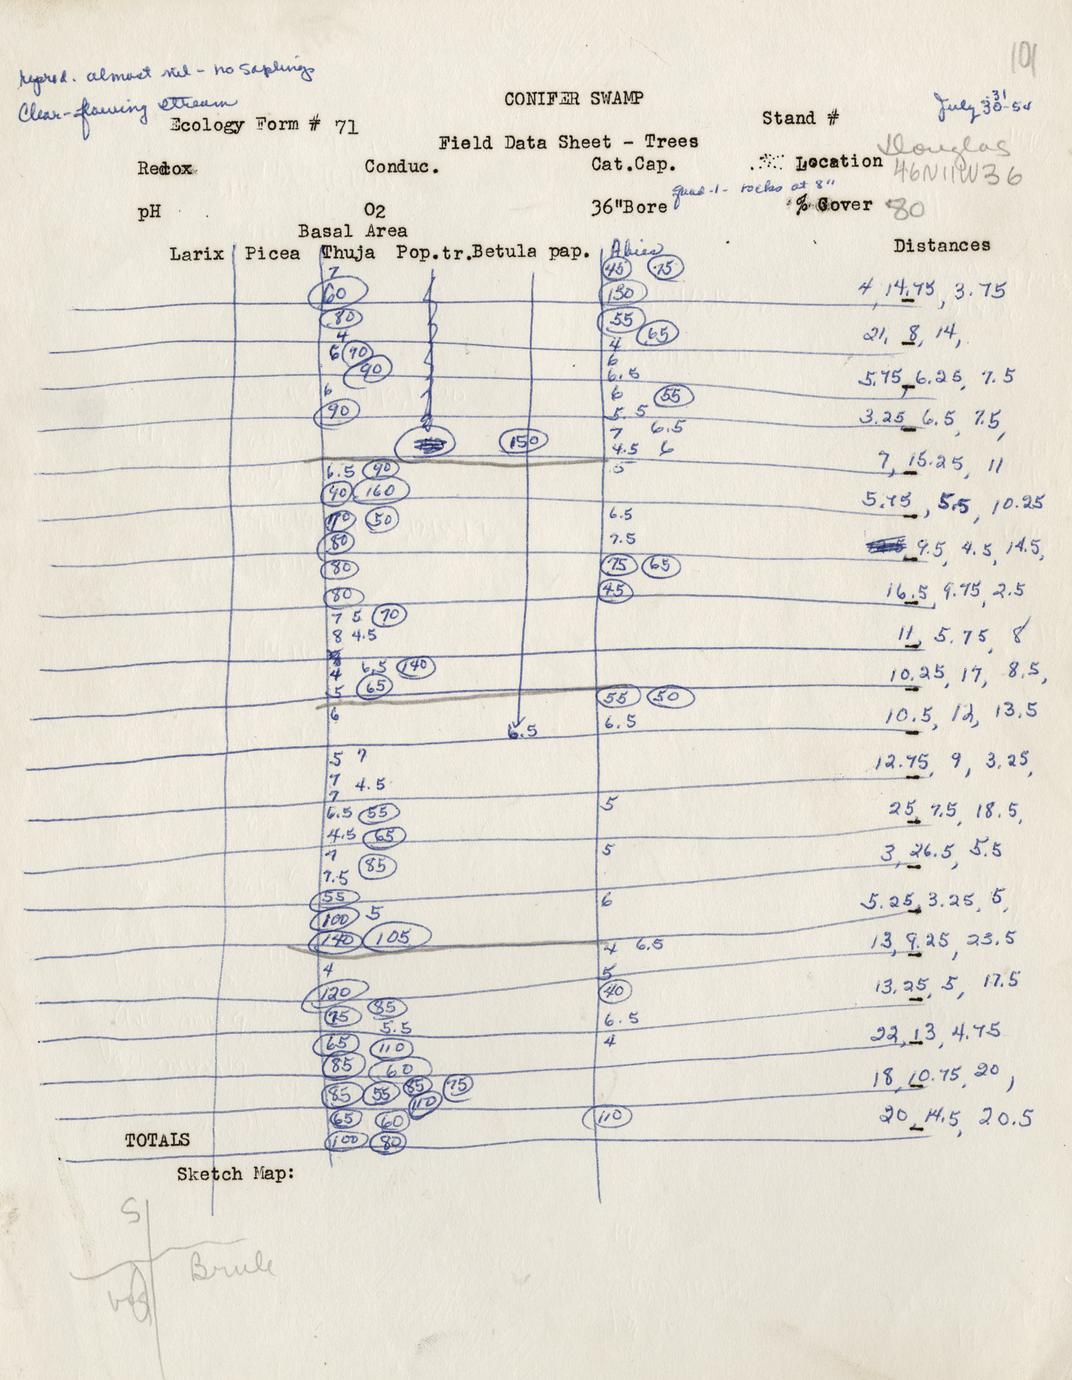 101
reprod. almost nil - no saplings
Clear-flowing stream
CONIFER SWAMP
July 30-31-54
Ecology Form # 71
Stand #
Field Data Sheet - Trees
Douglas
Redox Conduc. Cat.Cap. Location 46N11W36
quad-1- rocks at 8"
pH O2 36"Bore % Cover 80
Basal Area
Larix Picea Thuja Pop.tr. Betula pap. Abies Distances
7 45 75
60 130 4, 14.75, 3.75
80 55
4 65 21, 8, 14,
6 70 4
90 6
6.5 5.75, 6.25, 7.5
6 6 55
90 5.5 3.25, 6.5, 7.5,
7 6.5
150 4.5 6
5 7, 15.25, 11
6.5 90
90 160 5.75, 5.5, 10.25
70 50 6.5
80 7.5 9.5, 4.5, 14.5,
80 75 65
80 45 16.5, 9.75, 2.5
7 5 70
8 4.5 11, 5.75, 8
4 6.5 140 10.25, 17, 8.5,
5 65
6 55 50
6.5 6.5 10.5, 12, 13.5
5 7 12.75, 9, 3.25,
7 4.5
7
6.5 55 5 25, 7.5, 18.5,
4.5 65
7 85 5 3, 26.5, 5.5
7.5
55 6 5.25, 3.25, 5,
100 5
140 105 4 6.5 13, 9.25, 23.5
4 5
120 40 13.25, 5, 17.5
75 85 6.5
5.5 4 22, 13, 4.75
65 110
85 60 18, 10.75, 20,
85 55 85 75
110
65 60 110 20, 14.5, 20.5
TOTALS 100 80
Sketch Map:
S
Brule